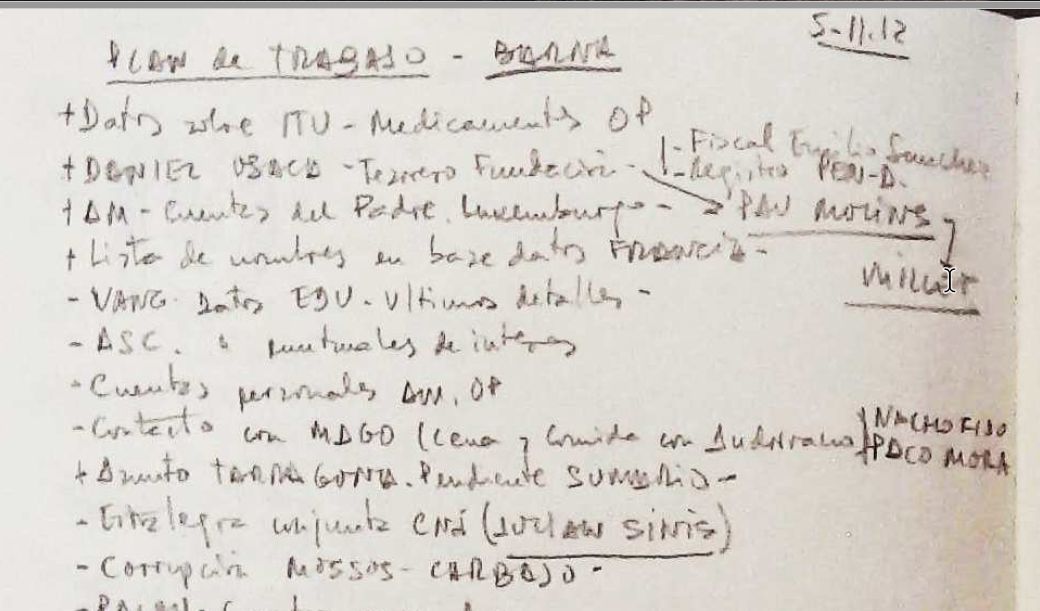 5-11.12
PLAN de TRABAJO - BARNA
+ Datos sobre ITV - Medicamentos OP
- Fiscal Emilio Sanchez
+ DANIEL OSACA - Tesorero Fundación -
- Registro PEN-D.
+ AM - Cuentas del Padre. Luxemburgo - PAU MOLINS
+ Lista de nombres en base datos FRANCIA -
- VANG. Datos EDU. Ultimos detalles -
- ASC. puntuales de interes
- Cuentas personales AM. OP
- Contacto con MAGO (Cena y Comida con
NACHO FIJO
PACO MORA
+ Asunto TARRAGONA. Pendiente SUMARIO -
- Estrategia conjunta CNI (JULIAN SINIS)
- Corrupción MOSSOS - CARBAJO -